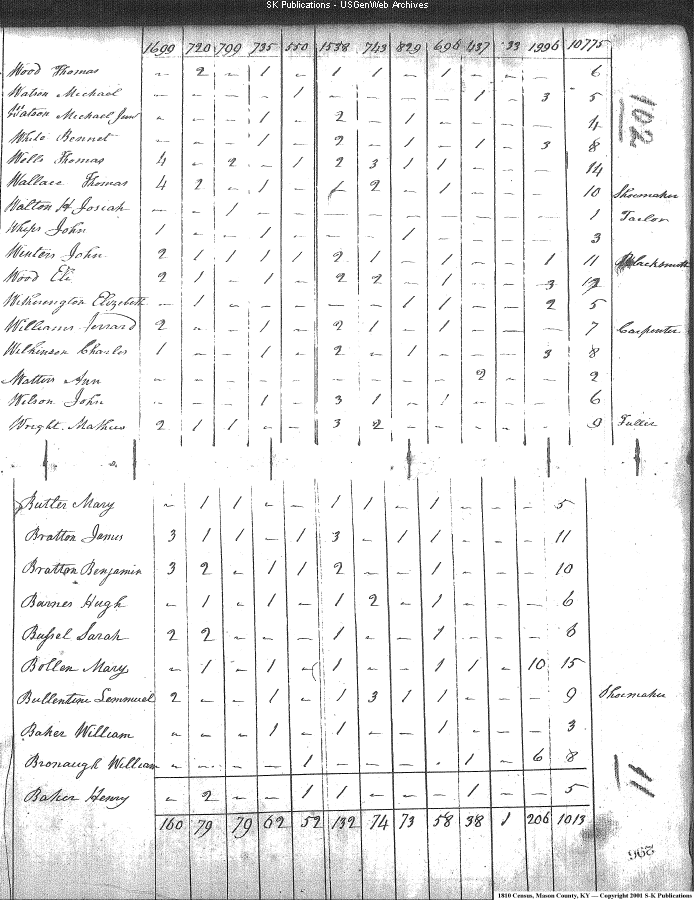 SK Publications - USGenWeb Archives
1699 720 799 735 550 1538 743 829 696 437 33 1996 10775
Wood Thomas - 2 - 1 - 1 1 - 1 - - - 6
Watson Michael - - - - 1 - - - - 1 - 3 5
Watson Michael Junr - - - 1 - 2 - 1 - - - - 4
White Bennet - - - 1 - 2 - 1 - 1 - 3 8
Wells Thomas 4 - 2 - 1 2 3 1 1 - - - 14
Wallace Thomas 4 2 - 1 - 1 2 - 1 - - - 10 Shoemaker
Walton H Josiah - - 1 - - - - - - - - - 1 Tailor
Whips John 1 - - 1 - - - 1 - - - - 3
Winters John 2 1 1 1 1 2 1 - 1 - - 1 11 Blacksmith
Wood Eli 2 1 - 1 - 2 2 - 1 - - 3 12
Witherington Elizebeth - 1 - - - - - 1 1 - - 2 5
Williams Jerrard 2 - - 1 - 2 1 - 1 - - - 7 Carpenter
Wilkinson Charles 1 - - 1 - 2 - 1 - - - 3 8
Watters Ann - - - - - - - - - 2 - - 2
Wilson John - - - 1 - 3 1 - 1 - - - 6
Wright Mathew 2 1 1 - - 3 2 - - - - - 9 Fuller
102
Butler Mary - 1 1 - - 1 1 - 1 - - - 5
Bratton James 3 1 1 - 1 3 - 1 1 - - - 11
Bratton Benjamin 3 2 - 1 1 2 - - 1 - - - 10
Barnes Hugh - 1 - 1 - 1 2 - 1 - - - 6
Bussel Sarah 2 2 - - - 1 - - 1 - - - 6
Bollen Mary - 1 - 1 - 1 - - 1 1 - 10 15
Bullentine Lemmuel 2 - - 1 - 1 3 1 1 - - - 9 Shoemaker
Baker William - - - 1 - 1 - - 1 - - - 3
Bronaugh William - - - - 1 - - - - 1 - 6 8
Baker Henry - 2 - - 1 1 - - - 1 - - 5
160 79 79 62 52 132 74 73 58 38 1 206 1013
11
296
1810 Census, Mason County, KY — Copyright 2001 S-K Publications